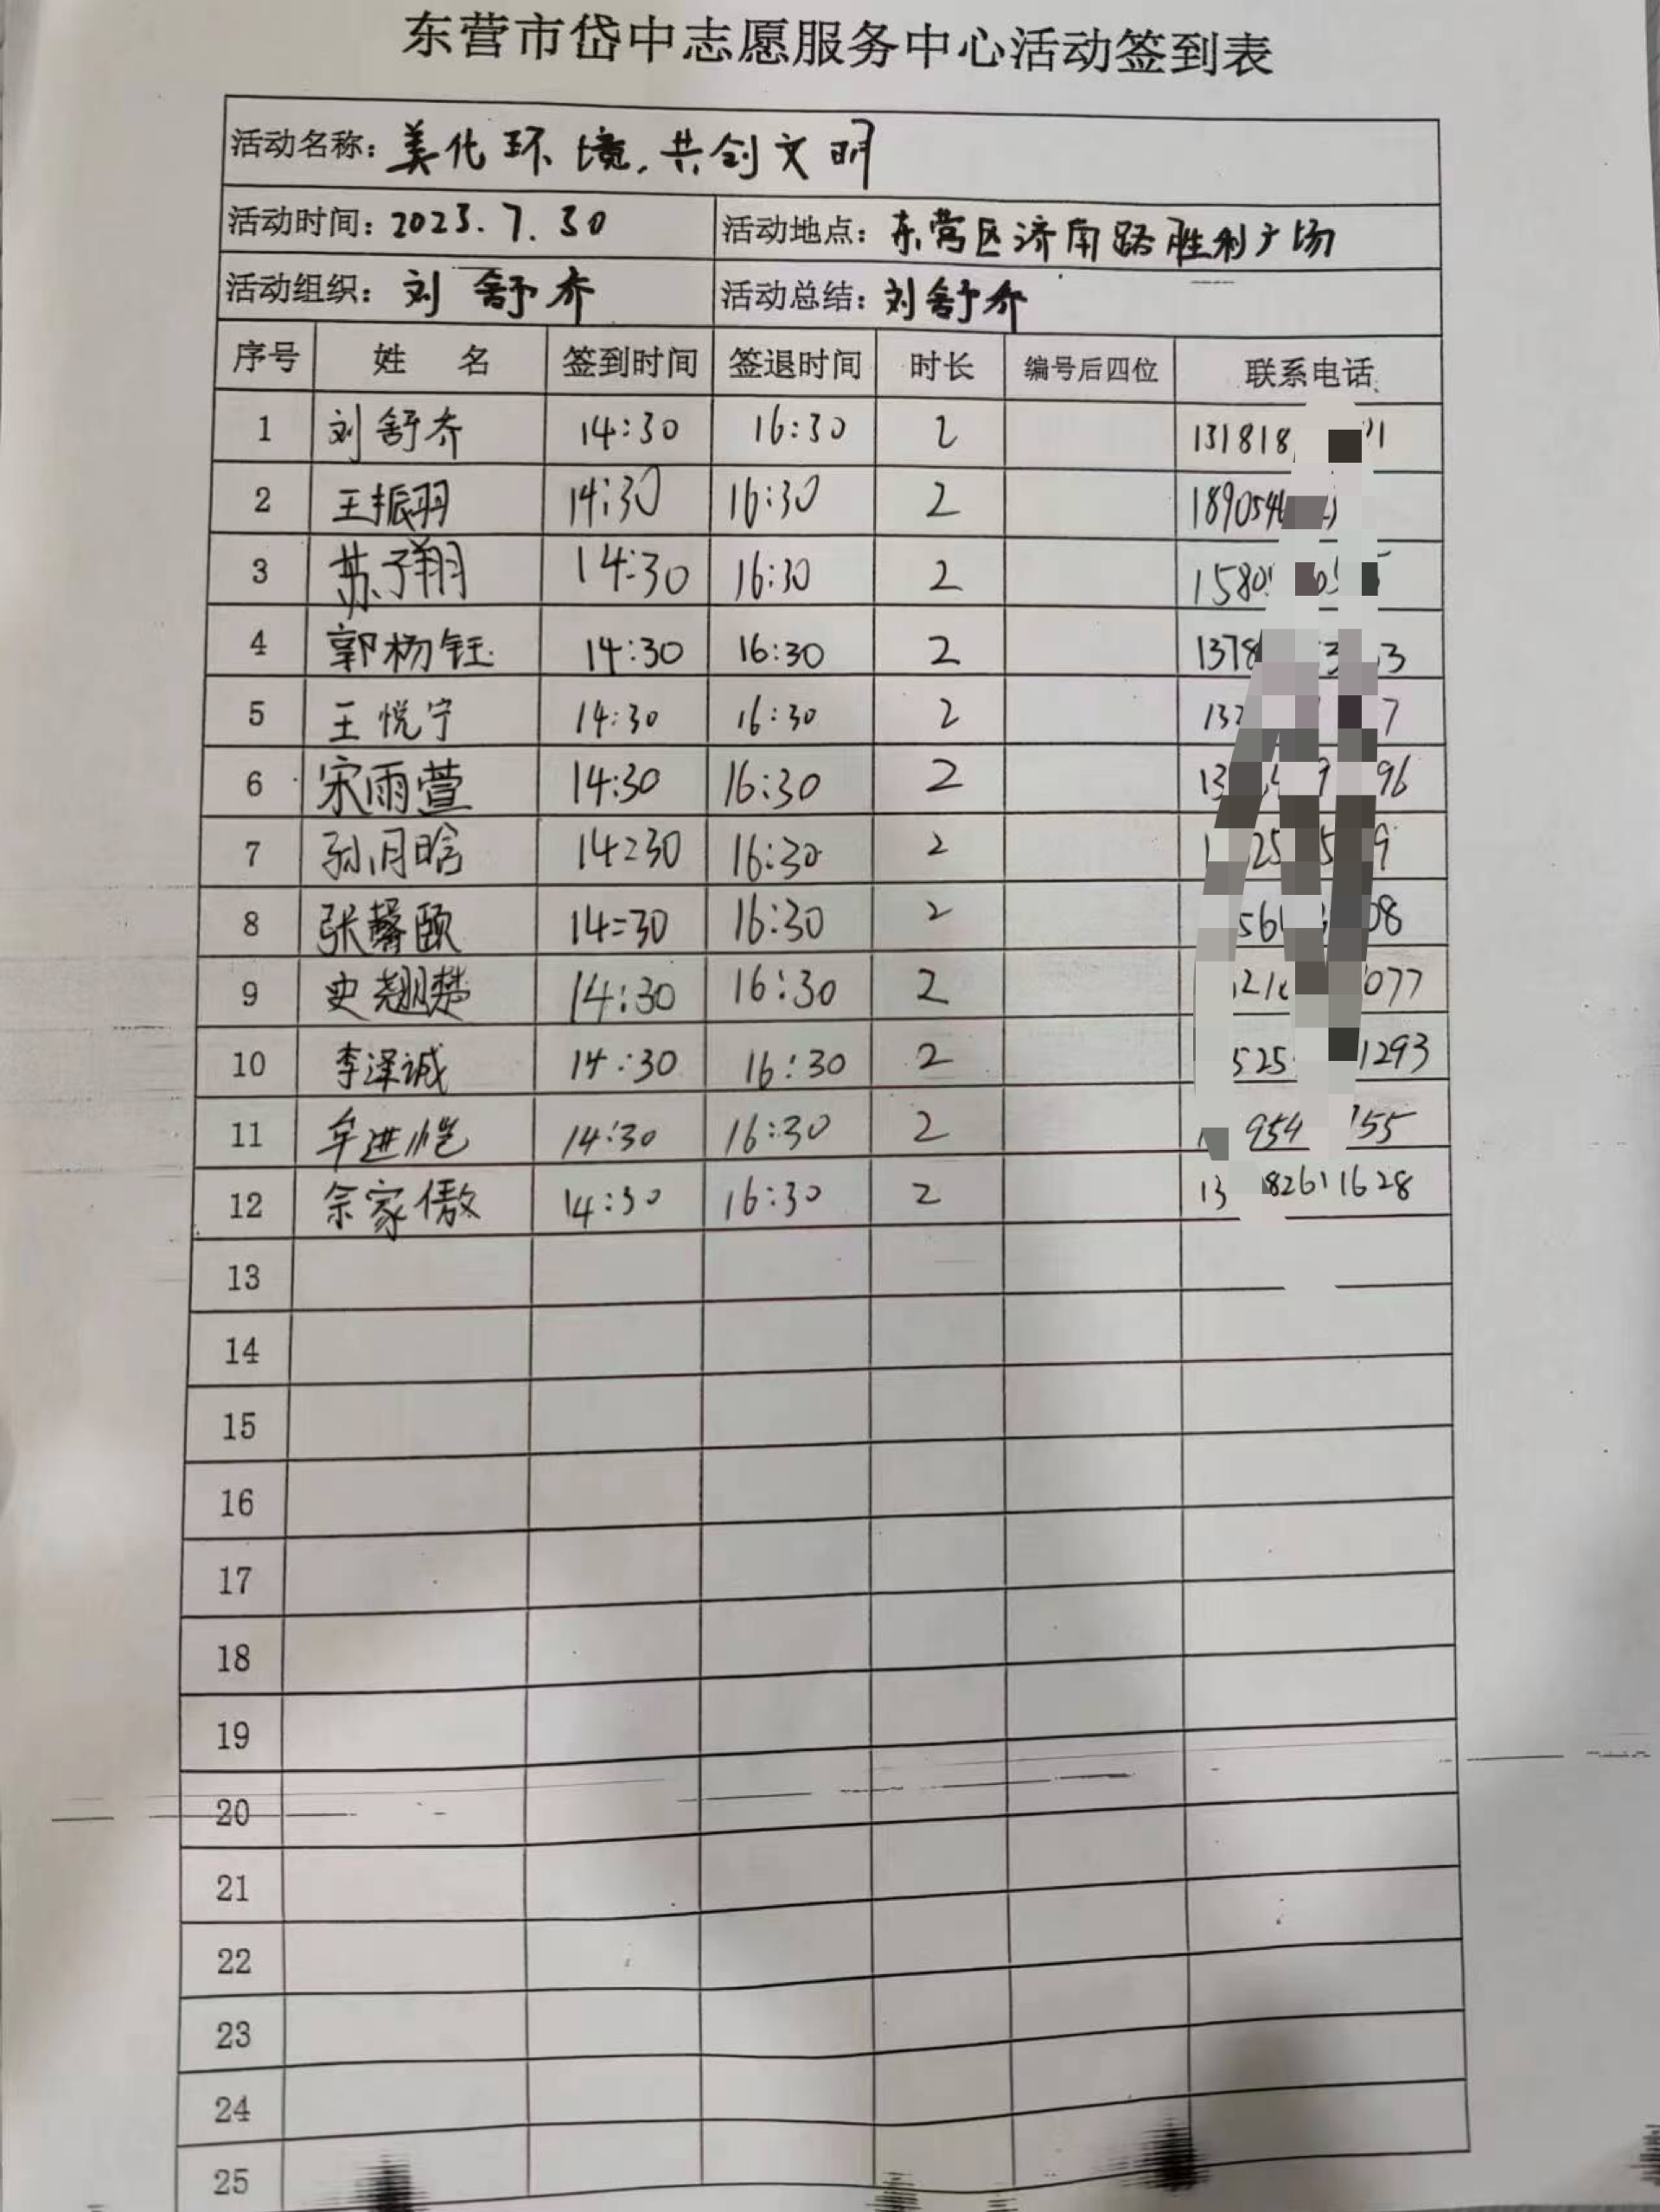 东营市岱中志愿服务中心活动签到表
活动名称：美化环境，共创文明
活动时间：2023.7.30 活动地点：东营区济南路胜利广场
活动组织：刘舒乔 活动总结：刘舒乔
序号 姓 名 签到时间 签退时间 时长 编号后四位 联系电话
1 刘舒乔 14:30 16:30 2
2 王振羽 14:30 16:30 2
3 苏子翔 14:30 16:30 2
4 郭杨钰 14:30 16:30 2
5 王悦宁 14:30 16:30 2
6 宋雨萱 14:30 16:30 2
7 孙月晗 14:30 16:30 2
8 张馨颐 14:30 16:30 2
9 史翘楚 14:30 16:30 2
10 李泽诚 14:30 16:30 2
11 牟进恺 14:30 16:30 2
12 宗家傲 14:30 16:30 2
13
14
15
16
17
18
19
20
21
22
23
24
25